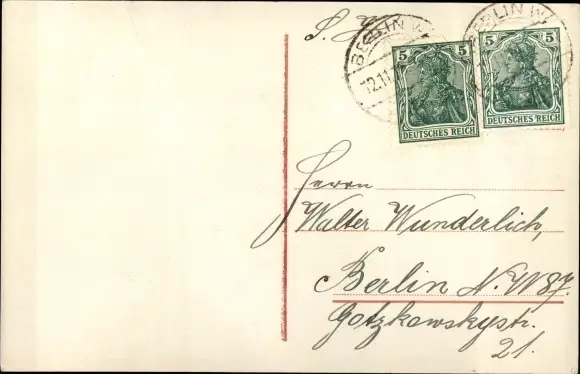 BERLIN W.
12.11.
5 5
DEUTSCHES REICH
BERLIN W
5 5
DEUTSCHES REICH
Herrn
Walter Wunderlich,
Berlin N.W 87.
Gotzkowskystr.
21.